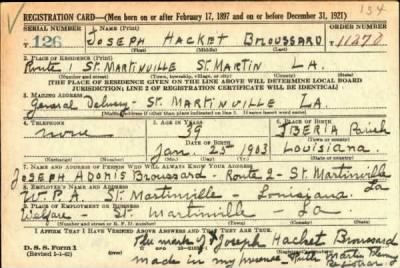 134
REGISTRATION CARD—(Men born on or after February 17, 1897 and on or before December 31, 1921)
SERIAL NUMBER 1. NAME (Print) ORDER NUMBER
T 126 JOSEPH HACKET BROUSSARD 11270
(First) (Middle) (Last)
2. PLACE OF RESIDENCE (Print)
Route 1 ST. MARTINVILLE ST. MARTIN LA.
(Number and street) (Town, township, village, or city) (County) (State)
[THE PLACE OF RESIDENCE GIVEN ON THE LINE ABOVE WILL DETERMINE LOCAL BOARD
JURISDICTION; LINE 2 OF REGISTRATION CERTIFICATE WILL BE IDENTICAL]
3. MAILING ADDRESS
General Delivery - ST. MARTINVILLE LA.
4. TELEPHONE 5. AGE IN YEARS 6. PLACE OF BIRTH
none 39 IBERIA Parish
DATE OF BIRTH
Jan. 25 1903 Louisiana.
(Exchange) (Number) (Mo.) (Day) (Yr.) (State or country)
7. NAME AND ADDRESS OF PERSON WHO WILL ALWAYS KNOW YOUR ADDRESS
JOSEPH ADONIS BROUSSARD - Route 2 - ST. MARTINVILLE La
8. EMPLOYER'S NAME AND ADDRESS
W. P. A. ST. Martinville - Louisiana.
Welfare - ST. Martinville - La
I AFFIRM THAT I HAVE VERIFIED ABOVE ANSWERS AND THAT THEY ARE TRUE.
The mark of X Joseph Hacket Broussard
D. S. S. Form 1
(Revised 1-1-42)
made in my presence Martin
Registrar